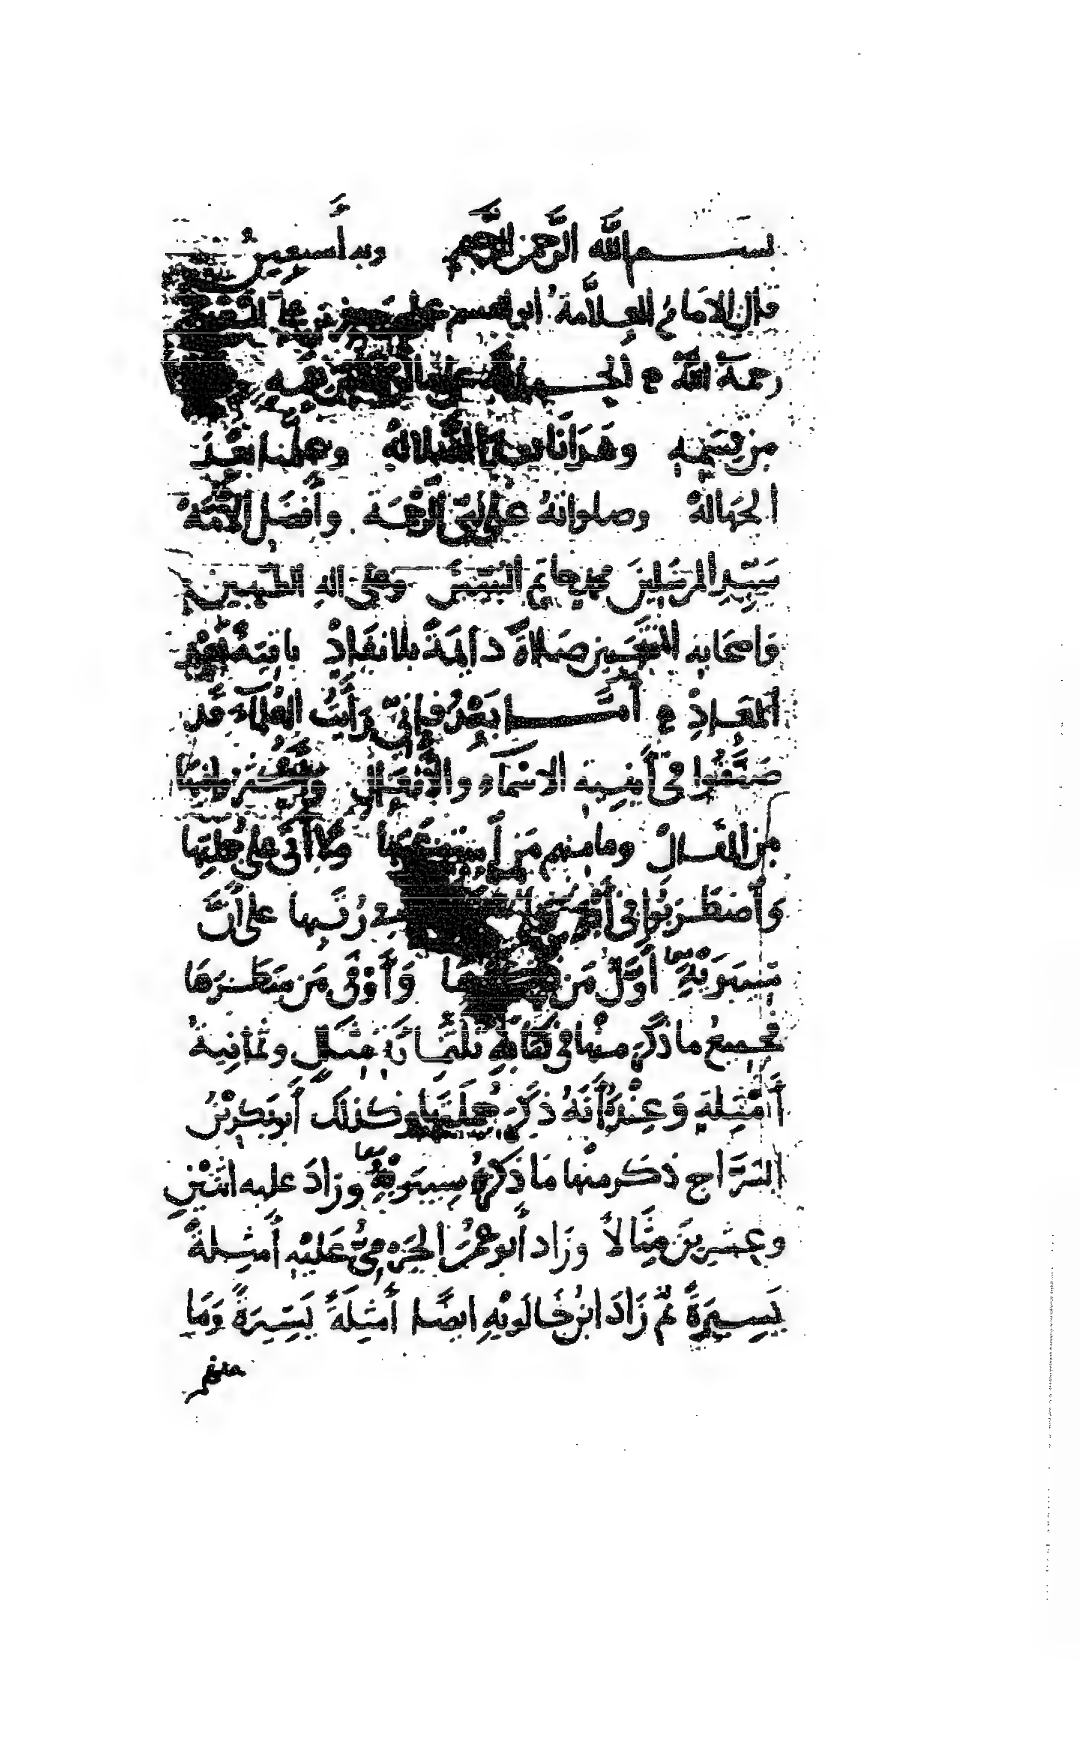 بسم الله الرحمن الرحيم وبه أستعين
قال الإمام العلامة أبو القسم علي بن جعفر
رحمة الله الحمد لله على
من قسمه وهدانا بعد الضلالة وعلمنا بعد
الجهالة وصلواته على نبي الرحمة وأفضل الأئمة
سيد المرسلين محمد خاتم النبيين وعلى اله الطيبين
واصحابه المنتجبين صلاة دائمة بلا نفاد باقية
المعاد أما بعد فإني رأيت العلماء قد
صنفوا في أبنية الاسماء والأفعال وأكثروا فيها
من المقال وما منهم من استوعبها ولا أتى على جملتها
وأضطربوا في رتبها على أن
سيبويه أول من وأوفى من سطرها
فجميع ما ذكر منها في كتابه ثلثماية مثال وثمانية
أمثلة وعنده أنه ذكر جملتها وكذلك أبو بكر بن
السراج ذكر منها ما ذكره سيبويه وزاد عليه اثنين
وعشرين مثالا وزاد أبو عمر الجرمي عليه أمثلة
يسيرة ثم زاد ابن خالويه ايضا أمثلة يسيرة وما
منهم